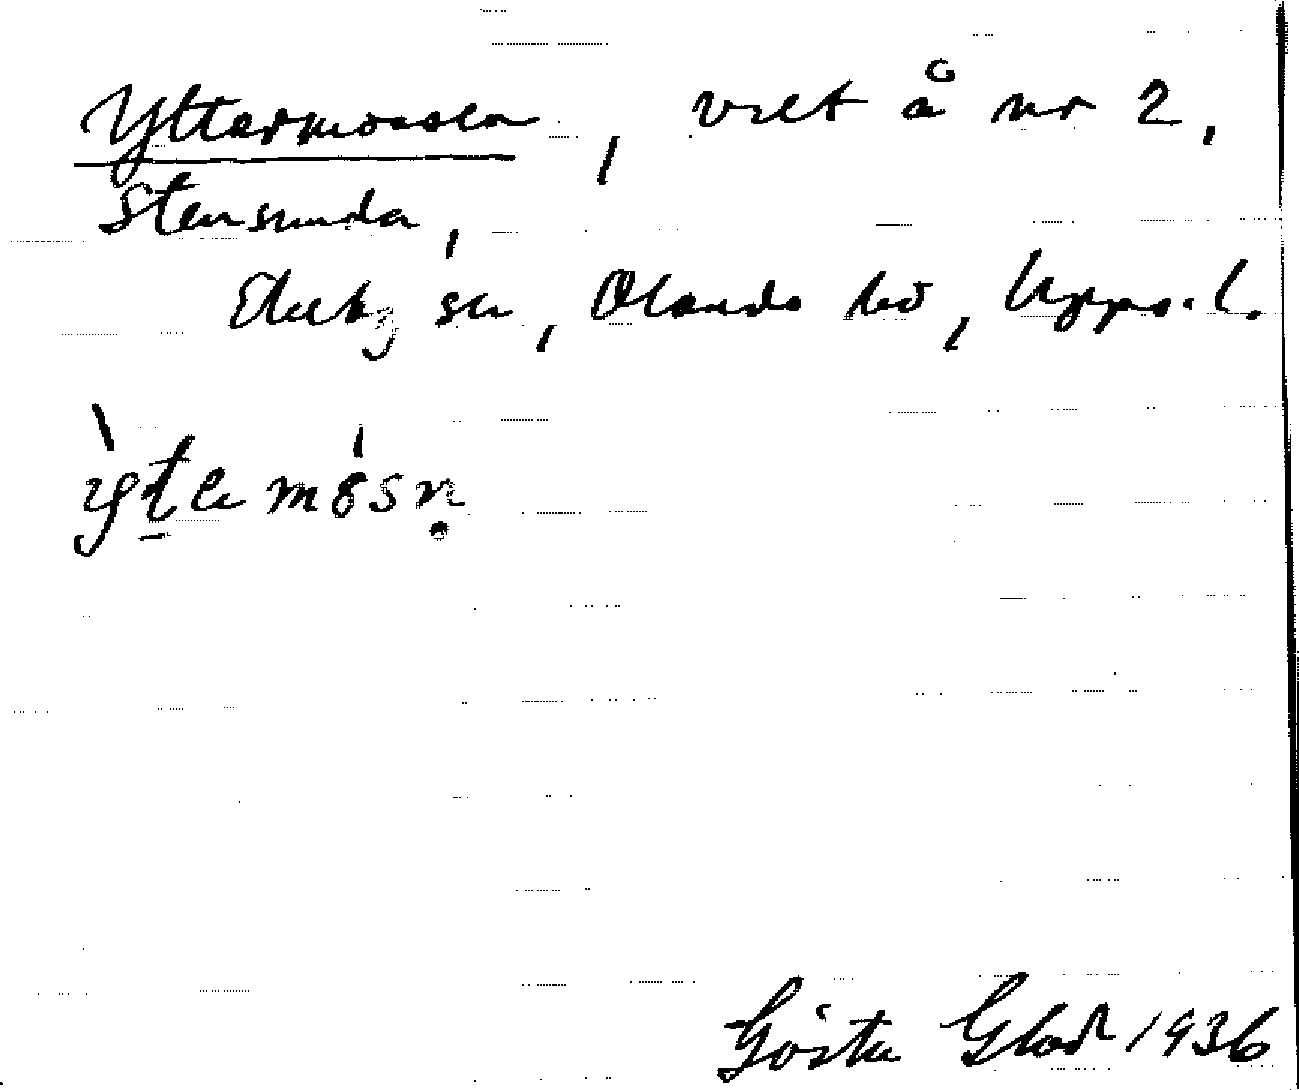 Yttermossen, vret å nr 2,
Stensunda,
sn, Olands hd, Upps. l.
Gösta Glad 1936